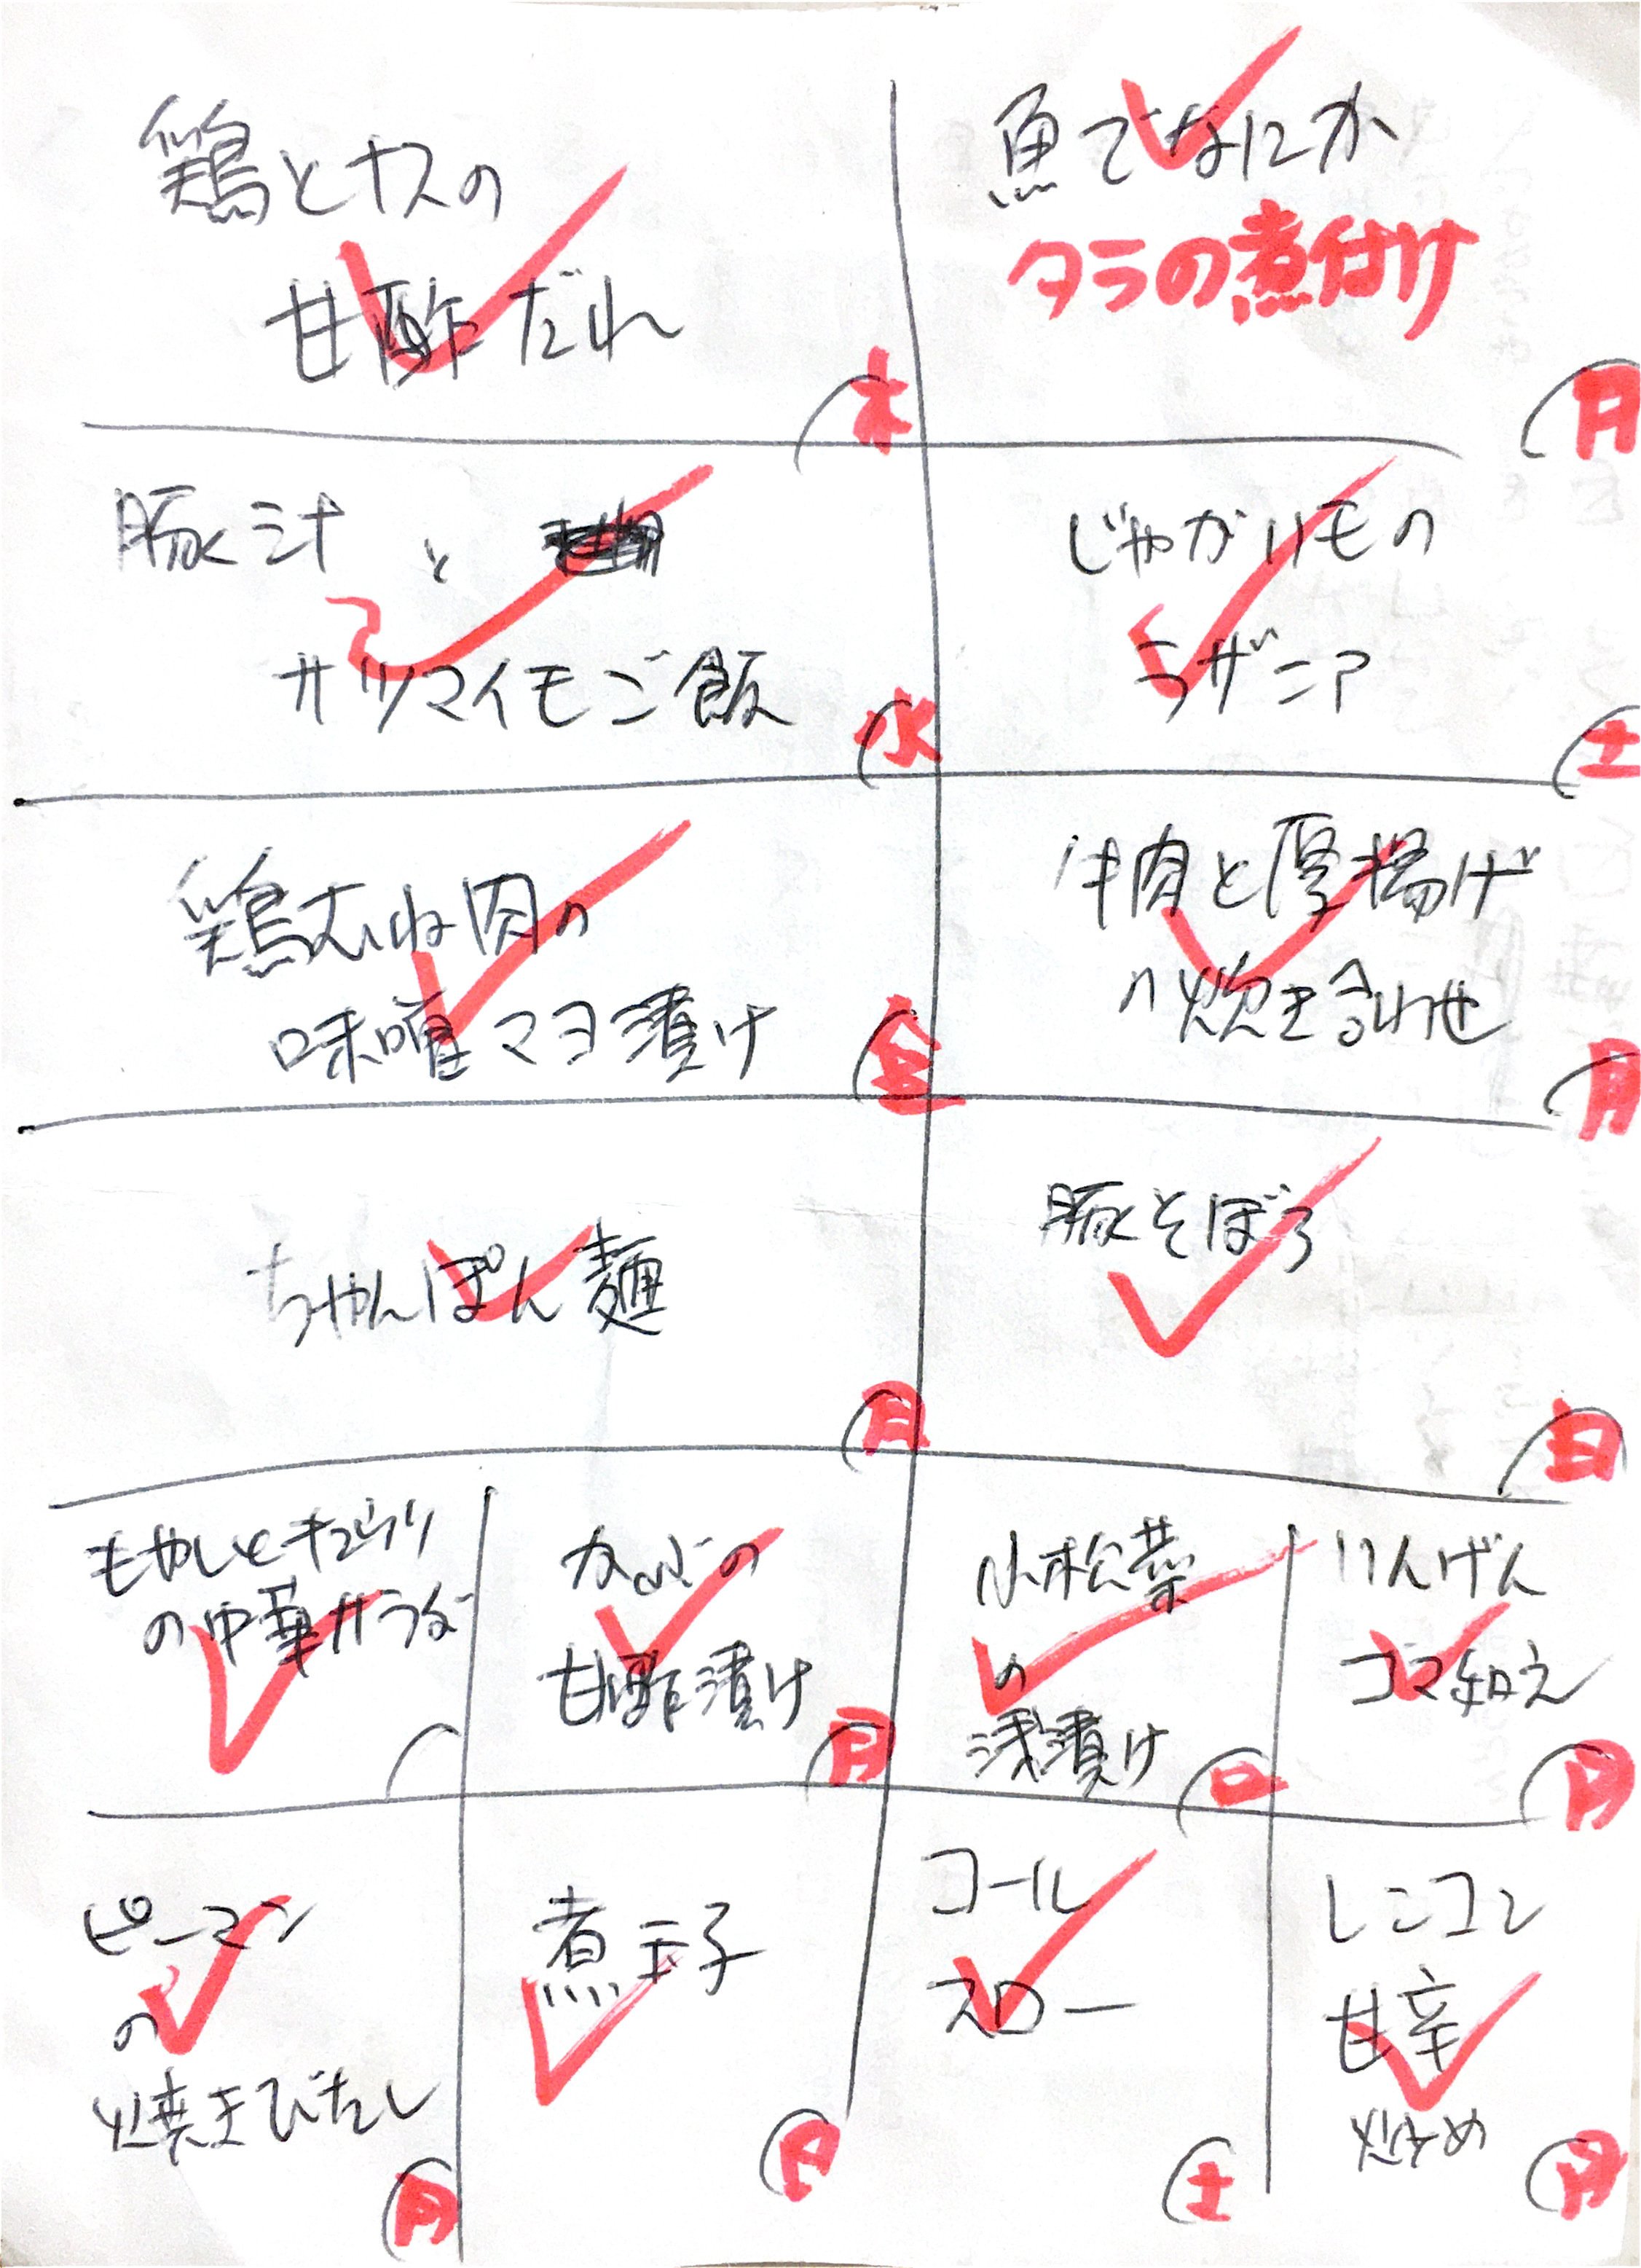 鶏とナスの
甘酢だれ
木
魚でなにか
タラの煮付け
月
豚汁と
サツマイモご飯
水
じゃがいもの
ラザニア
土
鶏むね肉の
味噌マヨ漬け
金
牛肉と厚揚げ
の炊き合わせ
月
ちゃんぽん麺
月
豚そぼろ
日
もやしとキュウリ
の中華サラダ
かぶの
甘酢漬け
月
小松菜
の
浅漬け
日
いんげん
ゴマ和え
月
ピーマン
の
焼きびたし
月
煮玉子
月
コール
スロー
土
レンコン
甘辛
炒め
月